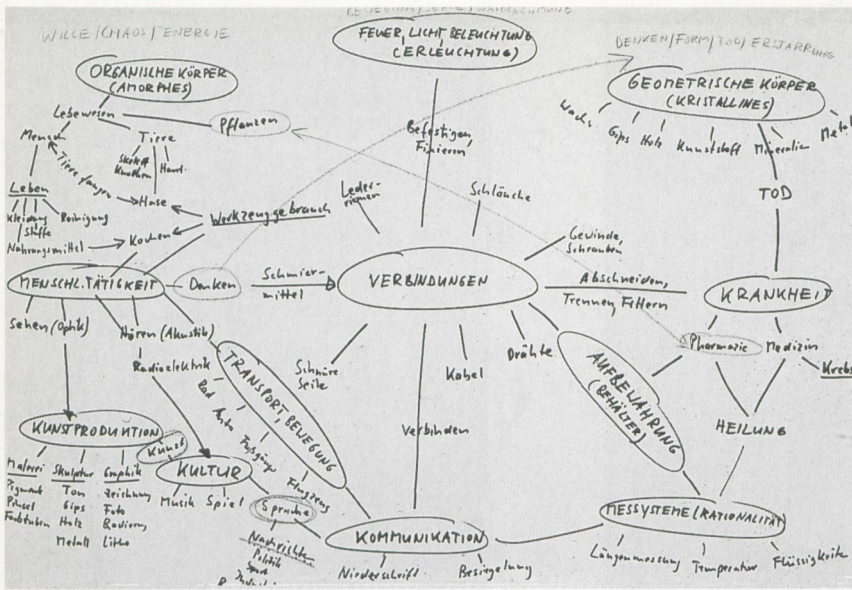 WILLE/CHAOS/ENERGIE
FEUER, LICHT, BELEUCHTUNG
(ERLEUCHTUNG)
DENKEN/FORM/TOD/ERSTARRUNG
ORGANISCHE KÖRPER
(AMORPHES)
GEOMETRISCHE KÖRPER
(KRISTALLINES)
Lebewesen
Pflanzen
Mensch
Tiere
Skelett
Knochen
Haut
Tiere fangen
Hase
Leben
Kleidung
Stoffe
Reinigung
Nahrungsmittel
Kochen
Werkzeuggebrauch
Befestigen,
Fixieren
Wachs
Gips
Holz
Kunststoff
Mineralien
Metal
TOD
Leder-
riemen
Schläuche
Gewinde,
Schrauben
MENSCHL. TÄTIGKEIT
Denken
Schmier-
mittel
VERBINDUNGEN
Abschneiden,
Trennen, Filtern
KRANKHEIT
Sehen (Optik)
Hören (Akustik)
Radioelektrik
Schnüre
Seile
Kabel
Drähte
Pharmazie
Medizin
Krebs
TRANSPORT, BEWEGUNG
Rad
Auto
Fussgänger
Flugzeug
AUFBEWAHRUNG
(BEHÄLTER)
Verbinden
HEILUNG
KUNSTPRODUKTION
Kunst
KULTUR
Malerei
Pigment
Pinsel
Farbtuben
Skulptur
Ton
Gips
Holz
Metall
Graphik
Zeichnung
Foto
Radierung
Litho
Musik
Spiel
Sprache
Nachrichten
Politik
Sport
KOMMUNIKATION
Niederschrift
Besiegelung
MESSYSTEME (RATIONALITÄT)
Längenmessung
Temperatur
Flüssigkeite